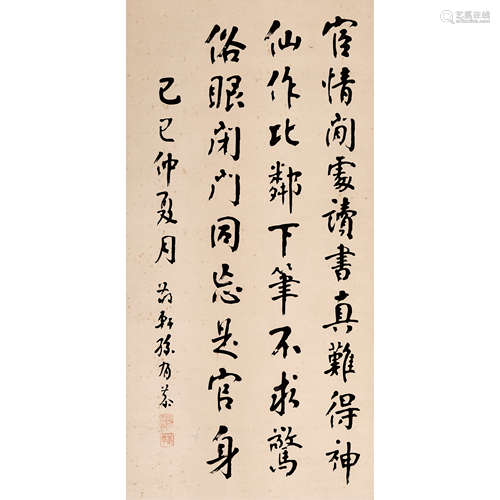 宦情闲处讀書真難得神
仙作比鄰下筆不求驚
俗眼閉门同忘是官身
己巳仲夏月